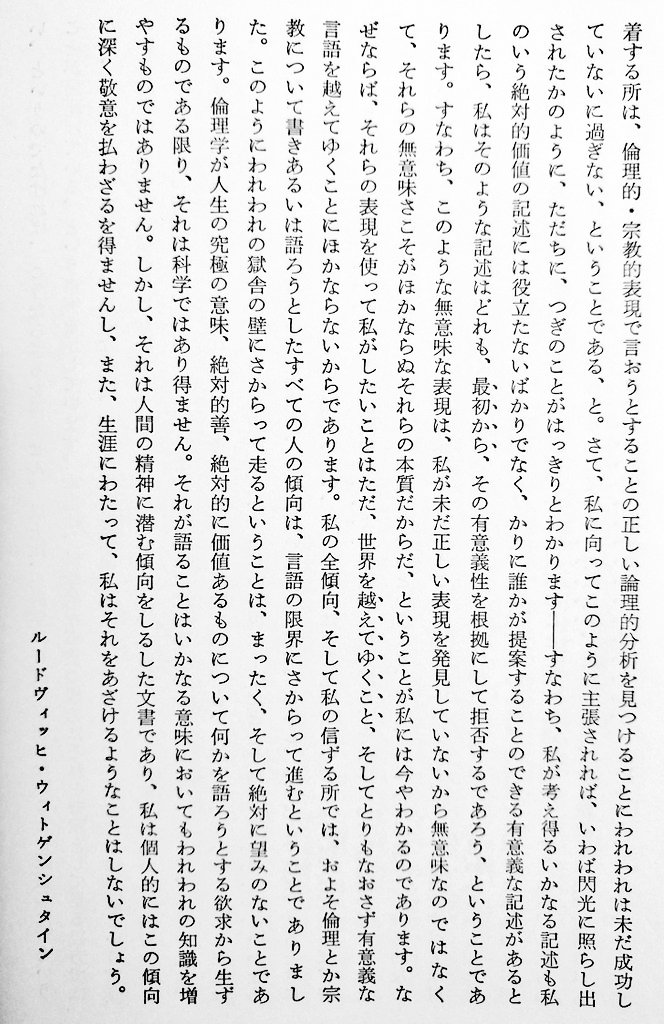 着する所は、倫理的・宗教的表現で言おうとすることの正しい論理的分析を見つけることにわれわれは未だ成功し
ていないに過ぎない、ということである、と。さて、私に向ってこのように主張されれば、いわば閃光に照らし出
されたかのように、ただちに、つぎのことがはっきりとわかります――すなわち、私が考え得るいかなる記述も私
のいう絶対的価値の記述には役立たないばかりでなく、かりに誰かが提案することのできる有意義な記述があると
したら、私はそのような記述はどれも、最初から、その有意義性を根拠にして拒否するであろう、ということであ
ります。すなわち、このような無意味な表現は、私が未だ正しい表現を発見していないから無意味なのではなく
て、それらの無意味さこそがほかならぬそれらの本質だからだ、ということが私には今やわかるのであります。な
ぜならば、それらの表現を使って私がしたいことはただ、世界を越えてゆくこと、そしてとりもなおさず有意義な
言語を越えてゆくことにほかならないからであります。私の全傾向、そして私の信ずる所では、およそ倫理とか宗
教について書きあるいは語ろうとしたすべての人の傾向は、言語の限界にさからって進むということでありまし
た。このようにわれわれの獄舎の壁にさからって走るということは、まったく、そして絶対に望みのないことであ
ります。倫理学が人生の究極の意味、絶対的善、絶対的に価値あるものについて何かを語ろうとする欲求から生ず
るものである限り、それは科学ではあり得ません。それが語ることはいかなる意味においてもわれわれの知識を増
やすものではありません。しかし、それは人間の精神に潜む傾向をしるした文書であり、私は個人的にはこの傾向
に深く敬意を払わざるを得ませんし、また、生涯にわたって、私はそれをあざけるようなことはしないでしょう。
ルードヴィッヒ・ウィトゲンシュタイン